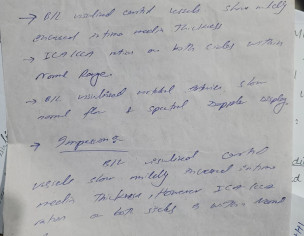 → B/L visulized carotid vessels show mildly
increased intima media thickness
→ ICA/CCA ratios on both sides within
normal Range.
→ B/L visulized vertebral arteries show
normal flow & spectral doppler display
→ Impression:-
B/L visulized carotid
vessels show mildly increased intima
media Thickness, However ICA/CCA
ratios on both sides is within normal